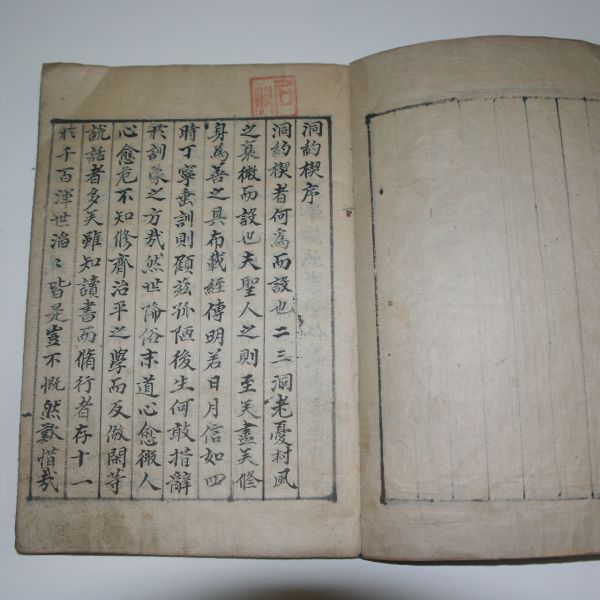 洞約禊序
洞約禊者何為而設也二三洞老憂村風
之衰微而設也夫聖人之則至矣盡矣修
身為善之具布載經傳明若日月信如四
時丁寧垂訓則顧玆孤陋後生何敢措辭
於訓蒙之方㦲然世降俗末道心愈微人
心愈危不知修齊治平之學而反做閑等
說話者多矣雖知讀書而脩行者存十一
於千百渾世滔〻皆是豈不慨然歎惜㦲